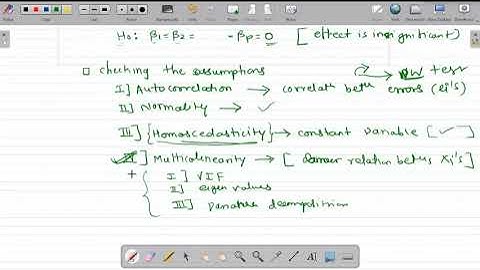 H₀: β₁=β₂= -βp=0 [effect is insignificant)
□ checking the assumptions
I] Autocorrelation → correlatⁿ betⁿ errors (ei's) → DW test
II] Normality → ✓
III] {Homoscedasticity} → constant variable [✓]
] Multicolinearity → [ relation betⁿ xi's]
I] VIF
II] eigen values
III]